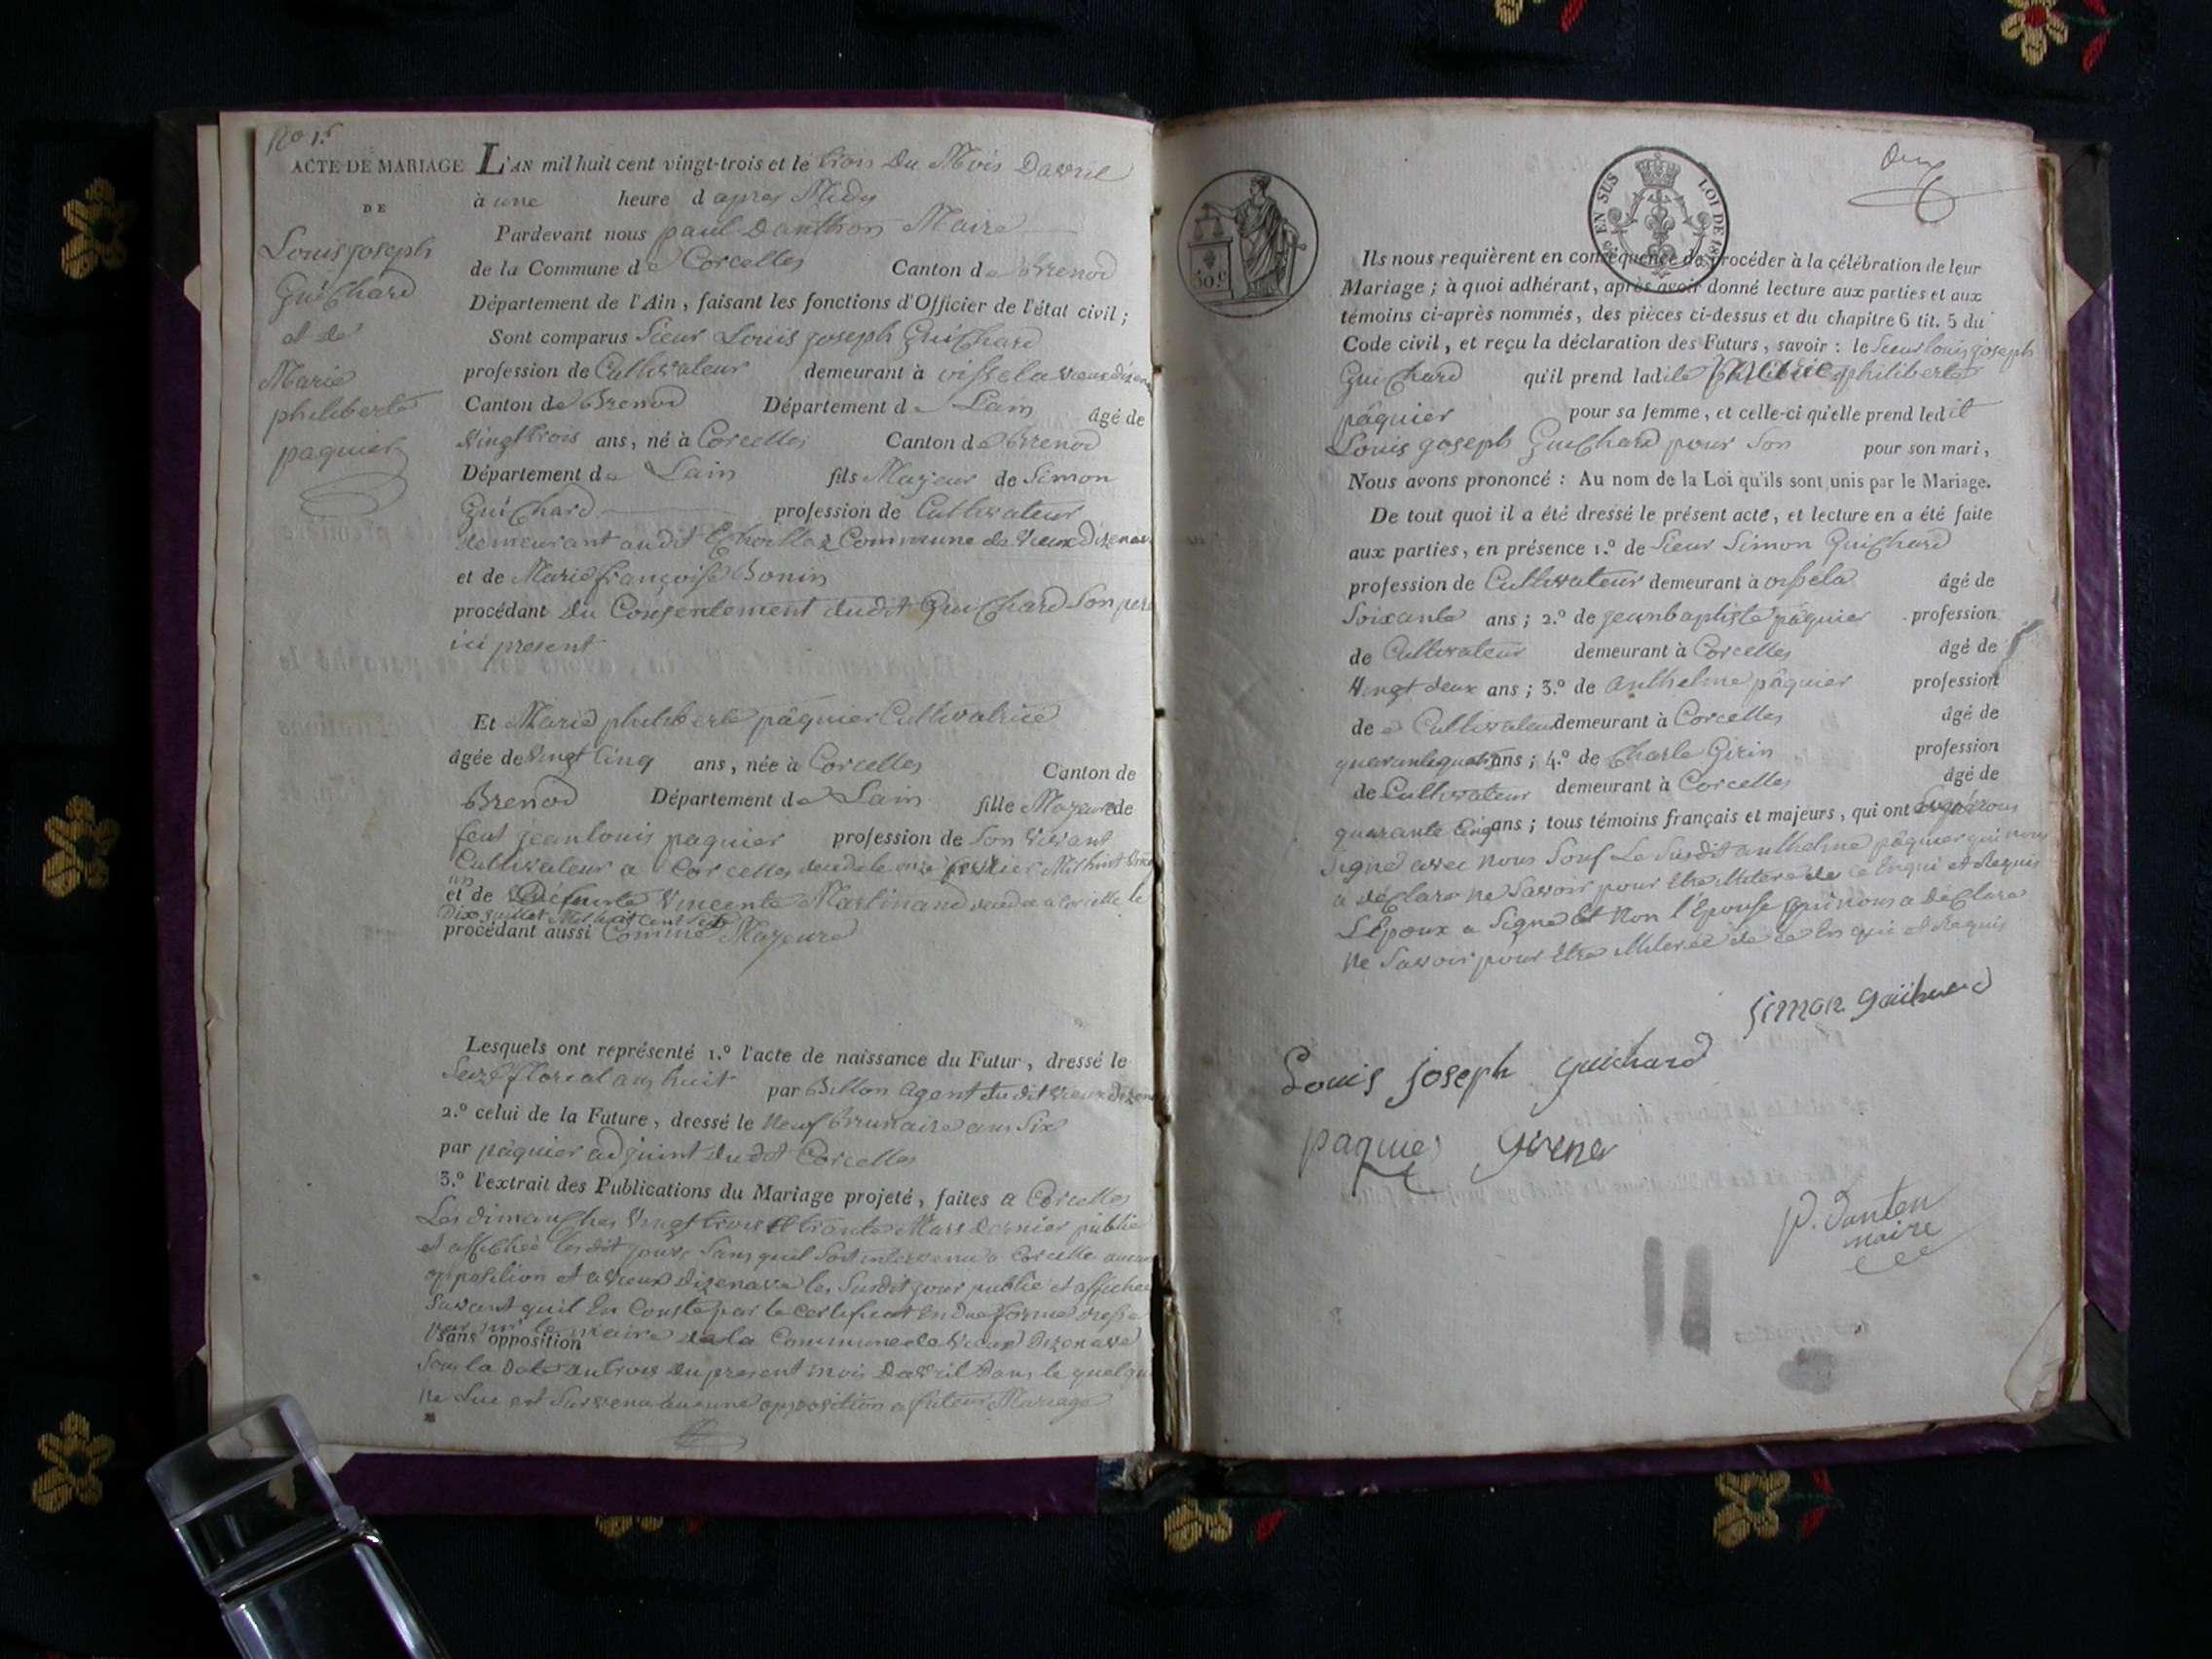 No 1.r
ACTE DE MARIAGE
DE
Louis joseph
Guichard
et de
Marie
philiberte
paquier
L'AN mil huit cent vingt-trois et le trois du Mois Davril
à une heure d apres Midy
Pardevant nous paul Danthon Maire
de la Commune de Corcelles Canton de Brenod
Département de l'Ain, faisant les fonctions d'Officier de l'état civil;
Sont comparus Sieur Louis joseph Guichard
profession de Cultivateur demeurant à
Canton de Brenod Département de Lain âgé de
Vingt trois ans, né à Corcelles Canton de Brenod
Département de Lain fils Majeur de Simon
Guichard profession de Cultivateur
demeurant audit Commune de Vieux Dizenave
et de Marie françoise Bonin
procédant du Consentement dudit Guichard Son pere
ici present
Et Marie philiberte pâquier Cultivatrice
âgée de Vingt Cinq ans, née à Corcelles Canton de
Brenod Département de Lain fille Mayeure de
feut jean louis paquier profession de Son Vivant
Cultivateur a Corcelles decede le onze Mil huit Vingt
un
et de Défunte Vincente Martinand decedee a Corcelle le
Dix juillet Mil huit Cent Sept
procédant aussi Comme Mayeure
Lesquels ont représenté 1.º l'acte de naissance du Futur, dressé le
Seize floreal ans huit par Billon agent du dit Vieux dizenave
2.º celui de la Future, dressé le Neuf Brumaire ans Six
par pâquier adjoint du dit Corcelles
3.º l'extrait des Publications du Mariage projeté, faites a Corcelles
Les dimanches Vingt trois et trante Mars dernier publie
et affichée les dit jours Sans quil Soit intervenu a Corcelle aucune
opposition et a Vieux dizenave les Susdit jour publie et affichee
Suivant quil En Conste par le Certificat En Due forme
par le maire de la Commune de Vieux Dizenave
sans opposition
Sous la date du trois du present mois Davril Dans le quel
ne Lui est Survenu aucune opposition a futeur Mariage
50 c.
EN SUS
LOI DE 18
Deux
Ils nous requièrent en conséquence de procéder à la célébration de leur
Mariage; à quoi adhérant, après avoir donné lecture aux parties et aux
témoins ci-après nommés, des pièces ci-dessus et du chapitre 6 tit. 5 du
Code civil, et reçu la déclaration des Futurs, savoir: le Sieur louis joseph
Guichard qu'il prend ladite philiberte
pâquier pour sa femme, et celle-ci qu'elle prend ledit
Louis joseph Guichard pour Son pour son mari,
Nous avons prononcé: Au nom de la Loi qu'ils sont unis par le Mariage.
De tout quoi il a été dressé le présent acte, et lecture en a été faite
aux parties, en présence 1.º de Sieur Simon Guichard
profession de Cultivateur demeurant à âgé de
Soixante ans; 2.º de jeanbaptiste pâquier profession
de Cultivateur demeurant à Corcelles âgé de
Vingt deux ans; 3.º de anthelme pâquier profession
de Cultivateur demeurant à Corcelles âgé de
quarante quatre ans; 4.º de Charle Girin profession
de Cultivateur demeurant à Corcelles âgé de
quarante Cinq ans; tous témoins français et majeurs, qui ont
Signé avec Nous Souf Le Susdit anthelme pâquier qui nous
a déclare ne Savoir pour Etre Miterede de ce Enqui et Requis
L'Epoux a Signe Et Non l'Epouse qui nous a déClare
Ne Savoir pour Etre Miteree de ce En qui et Requis
Simon Guichard
Louis joseph guichard
paquier Girin
P. Danten
maire